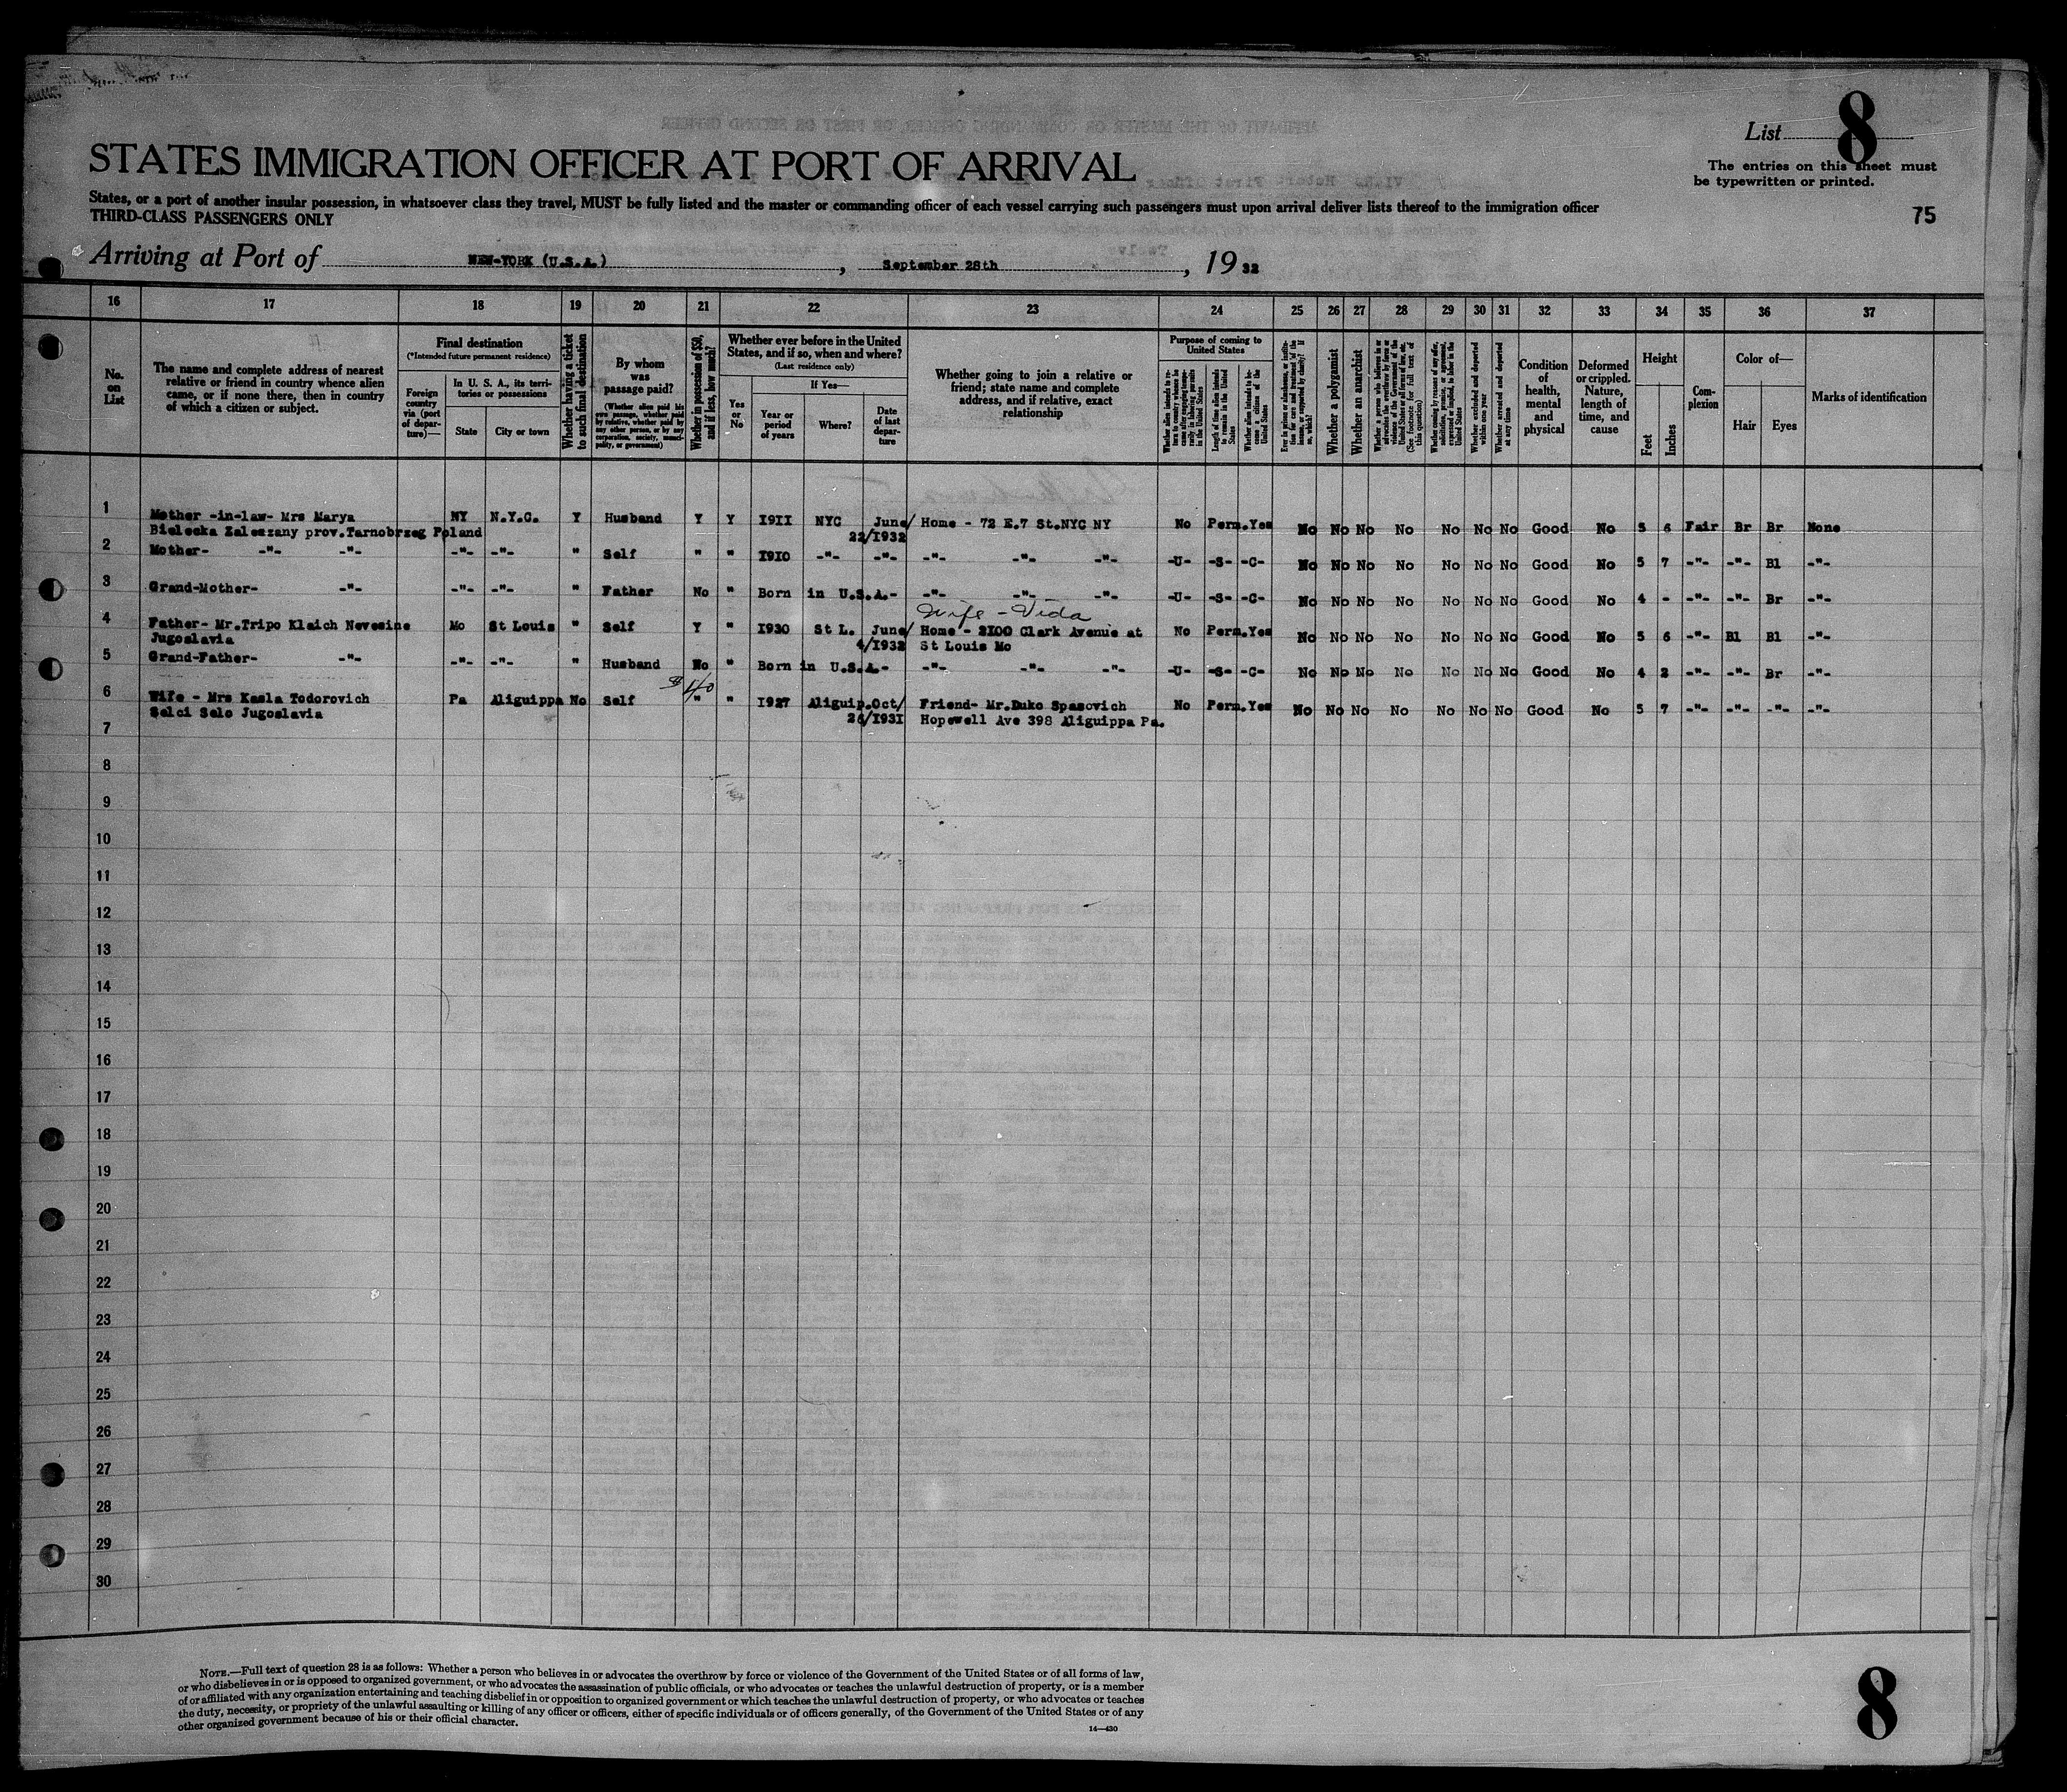 List 8
The entries on this sheet must
be typewritten or printed.
STATES IMMIGRATION OFFICER AT PORT OF ARRIVAL
States, or a port of another insular possession, in whatsoever class they travel, MUST be fully listed and the master or commanding officer of each vessel carrying such passengers must upon arrival deliver lists thereof to the immigration officer
THIRD-CLASS PASSENGERS ONLY
75
Arriving at Port of NEW-YORK (U.S.A.), September 28th, 1932
16 17 18 19 20 21 22 23 24 25 26 27 28 29 30 31 32 33 34 35 36 37
No. on List
The name and complete address of nearest
relative or friend in country whence alien
came, or if none there, then in country
of which a citizen or subject.
Final destination
(*Intended future permanent residence)
Foreign country via (port of departure)—
In U. S. A., its territories or possessions
State
City or town
Whether having a ticket to such final destination
By whom was passage paid?
(Whether alien paid his own passage, whether paid by relative, whether paid by any other person, or by any corporation, society, municipality, or government)
Whether in possession of $50, and if less, how much?
Whether ever before in the United
States, and if so, when and where?
(Last residence only)
Yes or No
If Yes—
Year or period of years
Where?
Date of last departure
Whether going to join a relative or
friend; state name and complete
address, and if relative, exact
relationship
Purpose of coming to United States
Length of time alien intends to remain in the United States
Whether alien intends to become a citizen of the United States
Whether a polygamist
Whether an anarchist
(See footnote for full text of this question)
Whether excluded and deported within one year
Whether arrested and deported at any time
Condition of health, mental and physical
Deformed or crippled. Nature, length of time, and cause
Height
Feet
Inches
Complexion
Color of—
Hair
Eyes
Marks of identification
1 Mother -in-law- Mrs Marya NY N.Y.C. Y Husband Y Y 1911 NYC June/ Home - 72 E.7 St.NYC NY No Perm.Yes No No No No No No No Good No 5 6 Fair Br Br None
Bielecka Zaleszany prov.Tarnobrzeg Poland 22/1932
2 Mother- -"- -"- -"- -"- " Self " " 1910 -"- -"- -"- -"- -"- -U- -S- -C- No No No No No No No Good No 5 7 -"- -"- Bl -"-
3 Grand-Mother- -"- -"- -"- " Father No " Born in U.S.A.- -"- -"- -"- -U- -S- -C- No No No No No No No Good No 4 - -"- -"- Br -"-
Wife - Vida
4 Father- Mr.Tripo Klaich Nevesine Mo St Louis " Self Y " 1930 St L. June/ Home - 2100 Clark Avenue at No Perm.Yes No No No No No No No Good No 5 6 -"- Bl Bl -"-
Jugoslavia 4/1932 St Louis Mo
5 Grand-Father- -"- -"- -"- " Husband No " Born in U.S.A- -"- -"- -"- -U- -S- -C- No No No No No No No Good No 4 2 -"- -"- Br -"-
$40
6 Wife - Mrs Kasla Todorovich Pa Aliguippa No Self " " 1927 Aliguip.Oct/ Friend- Mr.Duko Spasovich No Perm.Yes No No No No No No No Good No 5 7 -"- -"- -"- -"-
Selci Selo Jugoslavia 26/1931 Hopewell Ave 398 Aliguippa Pa.
7
8
9
10
11
12
13
14
15
16
17
18
19
20
21
22
23
24
25
26
27
28
29
30
NOTE.—Full text of question 28 is as follows: Whether a person who believes in or advocates the overthrow by force or violence of the Government of the United States or of all forms of law,
or who disbelieves in or is opposed to organized government, or who advocates the assassination of public officials, or who advocates or teaches the unlawful destruction of property, or is a member
of or affiliated with any organization entertaining and teaching disbelief in or opposition to organized government or which teaches the unlawful destruction of property, or who advocates or teaches
the duty, necessity, or propriety of the unlawful assaulting or killing of any officer or officers, either of specific individuals or of officers generally, of the Government of the United States or of any
other organized government because of his or their official character.
14—430
8